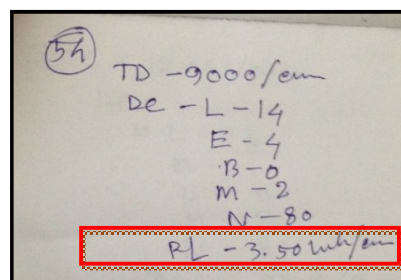 54
TD - 9000/cum
DC - L - 14
E - 4
B - 0
M - 2
N - 80
PL - 3.50 lakh/cum